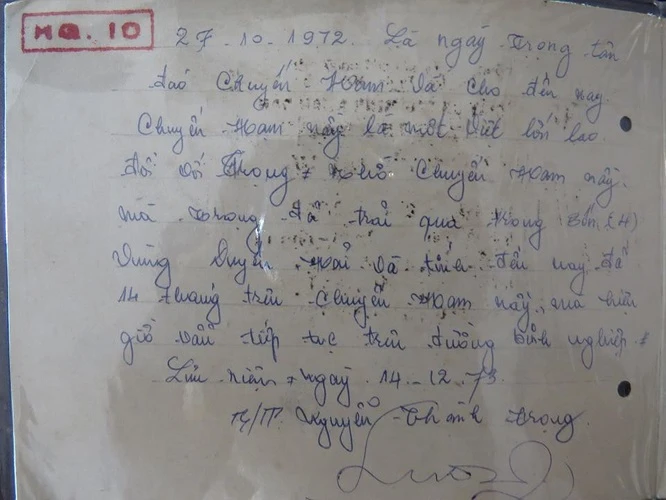 HQ. 10
27-10-1972. Là ngày Trọng tân
đáo Chuyến Ham Và cho đến nay
Chuyến Ham này là một lớn lao
đối với Trọng nhờ Chuyến Ham này.
mà Trọng đã trải qua trong Bốn (4)
Vùng Duyên Hải và tính đến nay đã
14 tháng trên Chuyến Ham này, mà hiện
giờ vẫn tiếp tục trên đường binh nghiệp
Lưu niệm ngày 14-12-73.
TS/TP. Nguyễn Thành Trọng